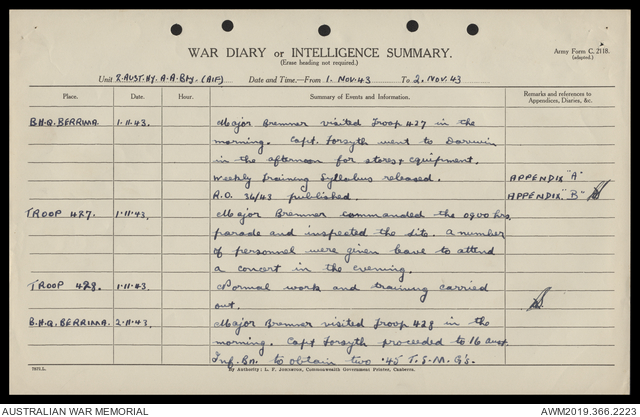 WAR DIARY or INTELLIGENCE SUMMARY.
(Erase heading not required.)
Army Form C. 2118.
(adapted.)
Unit 2. AUST. HY. A.A. Bty. (AIF) Date and Time.—From 1. NOV. 43 To 2. NOV. 43
Place. Date. Hour. Summary of Events and Information. Remarks and references to Appendices, Diaries, &c.
B.H.Q. BERRIMA. 1.11.43. Major Bremner visited Troop 427 in the
morning. Capt. Forsyth went to Darwin
in the afternoon for stores & equipment.
Weekly Training Syllabus released. APPENDIX "A"
R.O. 36/43 published. APPENDIX "B"
TROOP 427. 1.11.43. Major Bremner commanded the 0900 hrs.
parade and inspected the site. A number
of personnel were given leave to attend
a concert in the evening.
TROOP 428. 1.11.43. Normal work and training carried
out.
B.H.Q. BERRIMA. 2.11.43. Major Bremner visited Troop 428 in the
morning. Capt Forsyth proceeded to 16 Aust.
Inf. Bn. to obtain two .45 T.S.M.G's.
By Authority: L. F. Johnston, Commonwealth Government Printer, Canberra.
AUSTRALIAN WAR MEMORIAL
AWM2019.366.2223